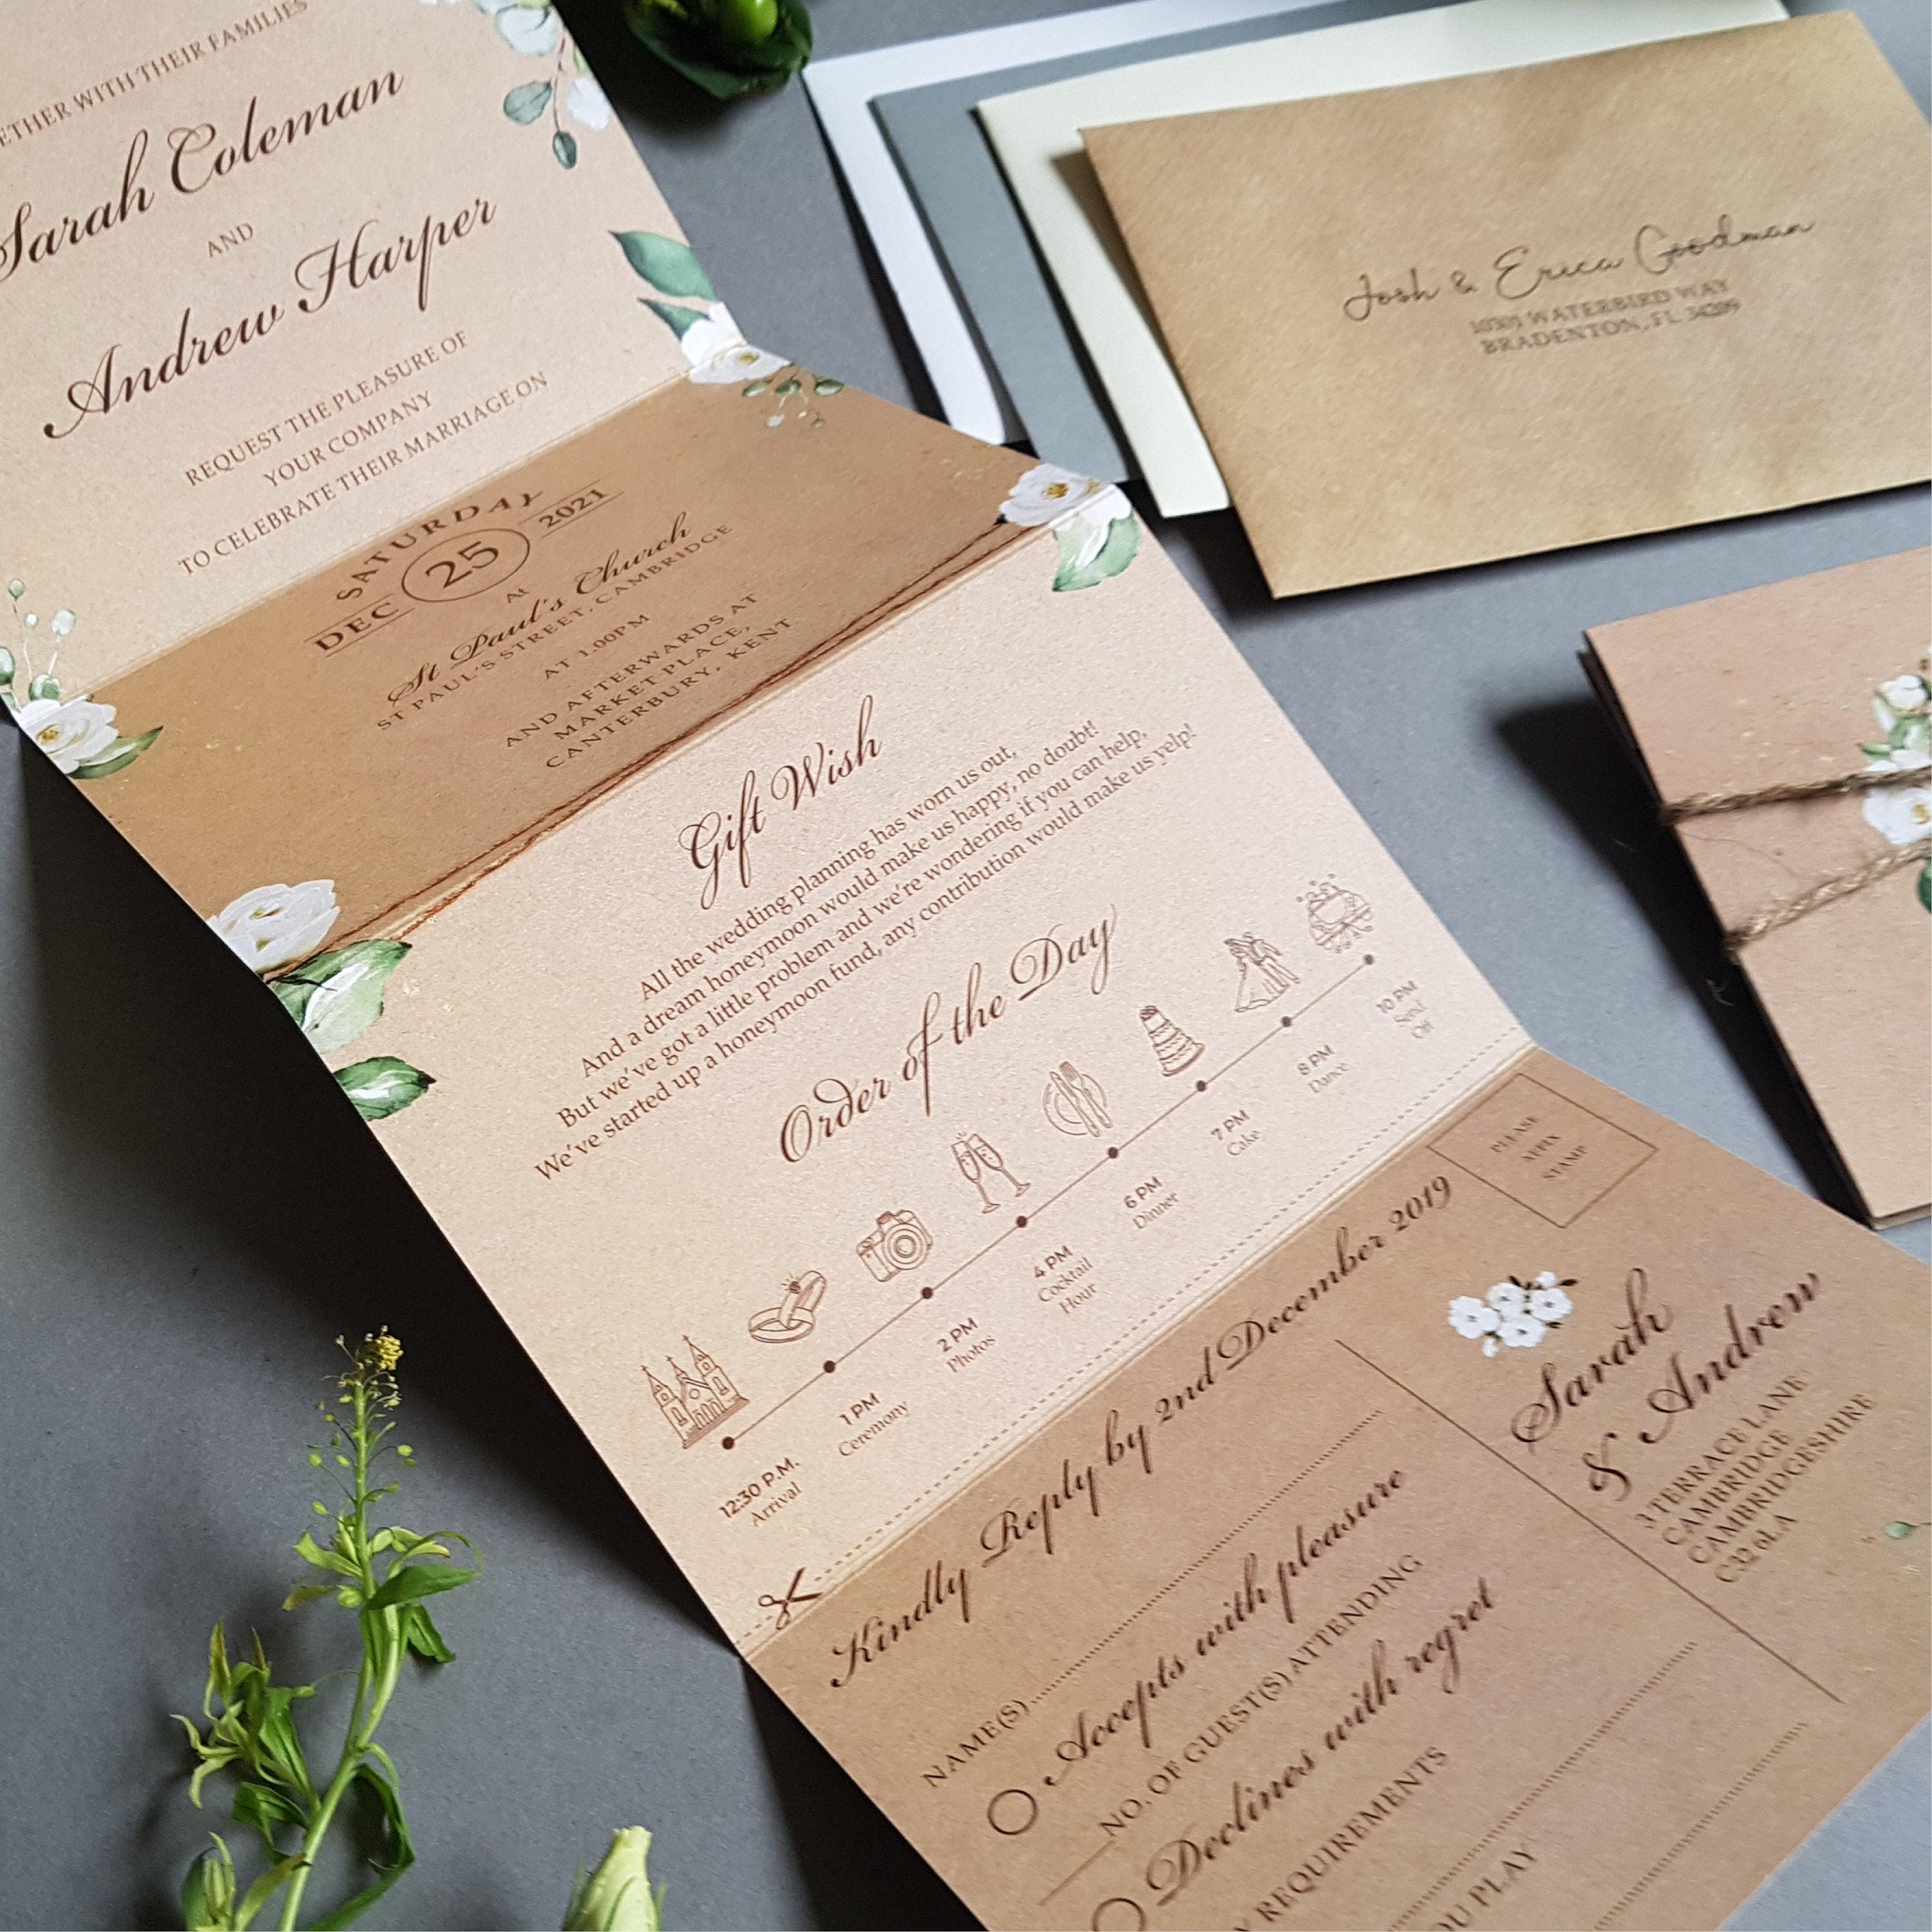 ETHER WITH THEIR FAMILIES
Sarah Coleman
AND
Andrew Harper
REQUEST THE PLEASURE OF
YOUR COMPANY
TO CELEBRATE THEIR MARRIAGE ON
SATURDAY
DEC 25 2021
At
St Paul's Church
ST PAUL'S STREET, CAMBRIDGE
AT 1.00PM
AND AFTERWARDS AT
MARKET PLACE,
CANTERBURY, KENT
Gift Wish
All the wedding planning has worn us out,
And a dream honeymoon would make us happy, no doubt!
But we've got a little problem and we're wondering if you can help,
We've started up a honeymoon fund, any contribution would make us yelp!
Order of the Day
12:30 P.M.
Arrival
1 PM
Ceremony
2 PM
Photos
4 PM
Cocktail
Hour
6 PM
Dinner
7 PM
Cake
8 PM
Dance
10 PM
Send
Off
Kindly Reply by 2nd December 2019
NAME(S)
Accepts with pleasure
NO. OF GUEST(S) ATTENDING
Declines with regret
Y REQUIREMENTS
OU PLAY
PLEASE
AFFIX
STAMP
Sarah
& Andrew
3 TERRACE LANE
CAMBRIDGE
CAMBRIDGESHIRE
C32 6LA
Josh & Erica Goodman
WATERBIRD WAY
BRADENTON, FL